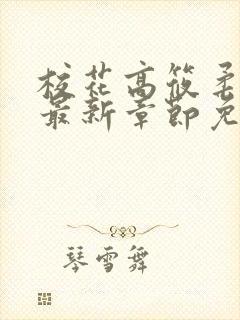 校花高筱柔
最新章节免
琴雪舞